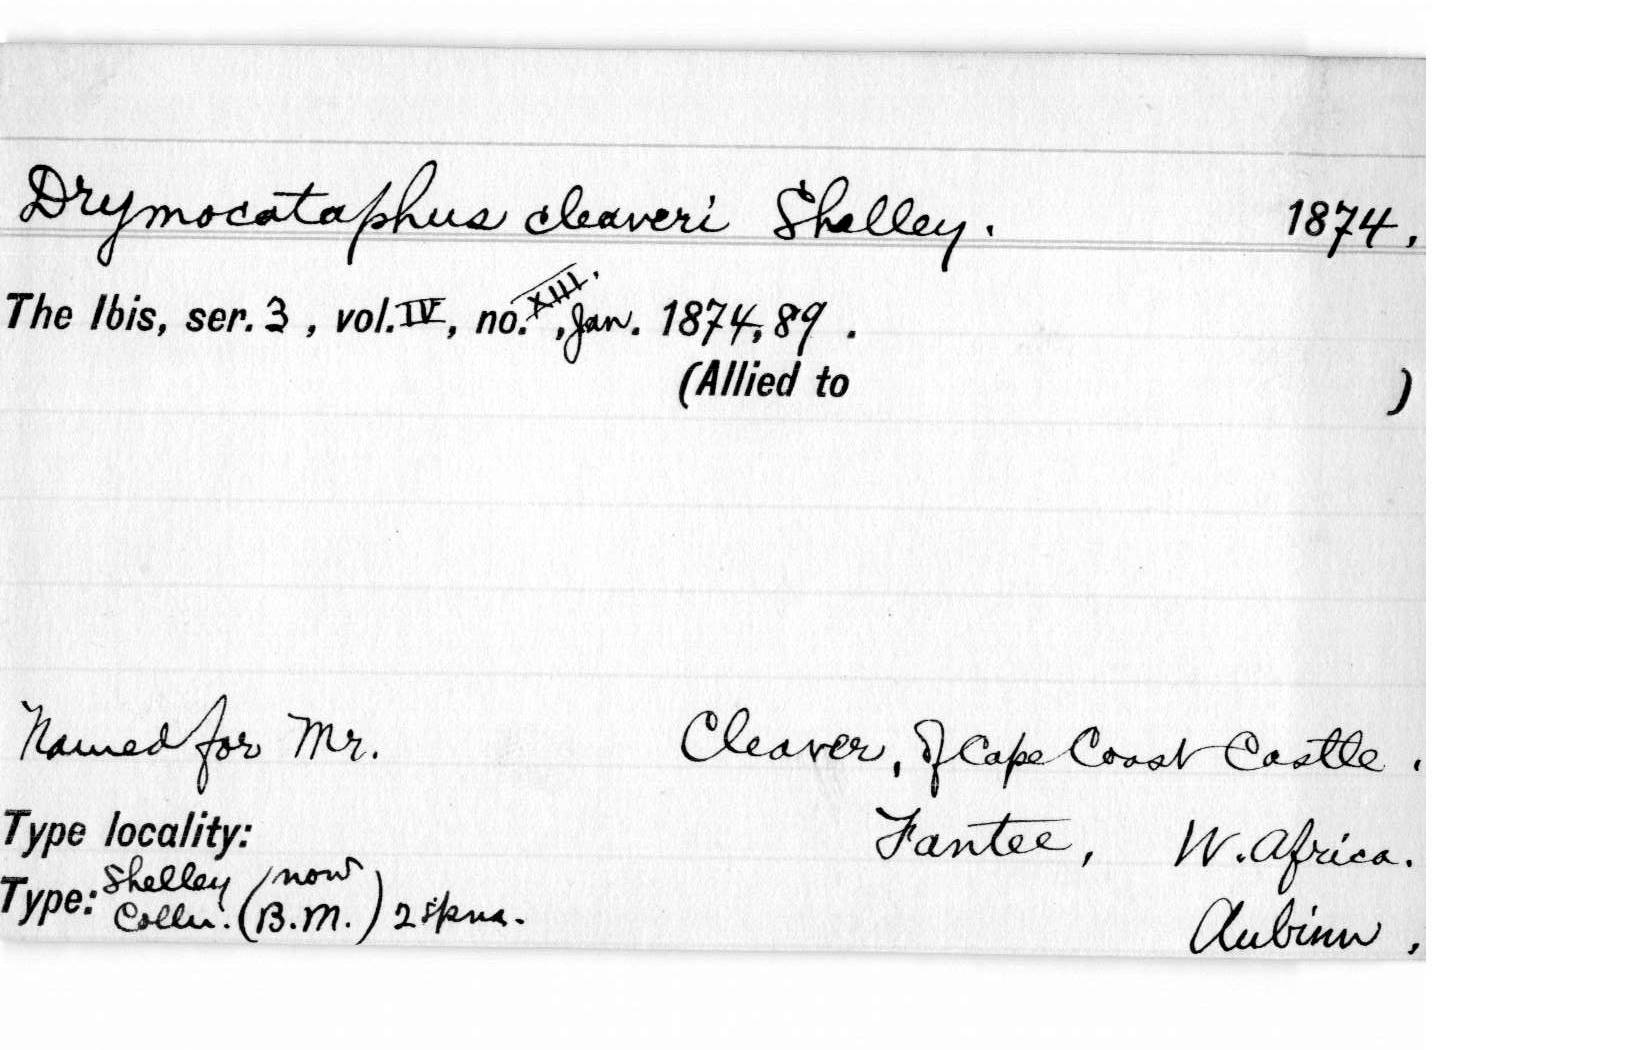 Drymocataphus cleaveri Shelley. 1874.
The Ibis, ser. 3, vol. IV, no. XIII., Jan. 1874, 89.
(Allied to )
Named for Mr. Cleaver, of Cape Coast Castle.
Type locality: Fantee, W. Africa.
Type: Shelley Colln. (now B.M.) 2 spns. Aubinn,